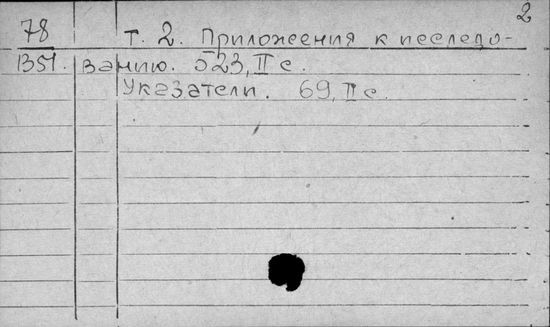 2
78 т. 2. Приложения к исследо-
1351. ванию. 523, II с.
Указатели. 69, II с.